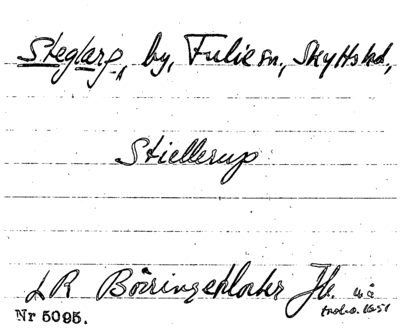 Steglarp, by, Fulie sn., Skytts hd,
Stiellerup
LR Böringekloster Jb.
Nr 5095.